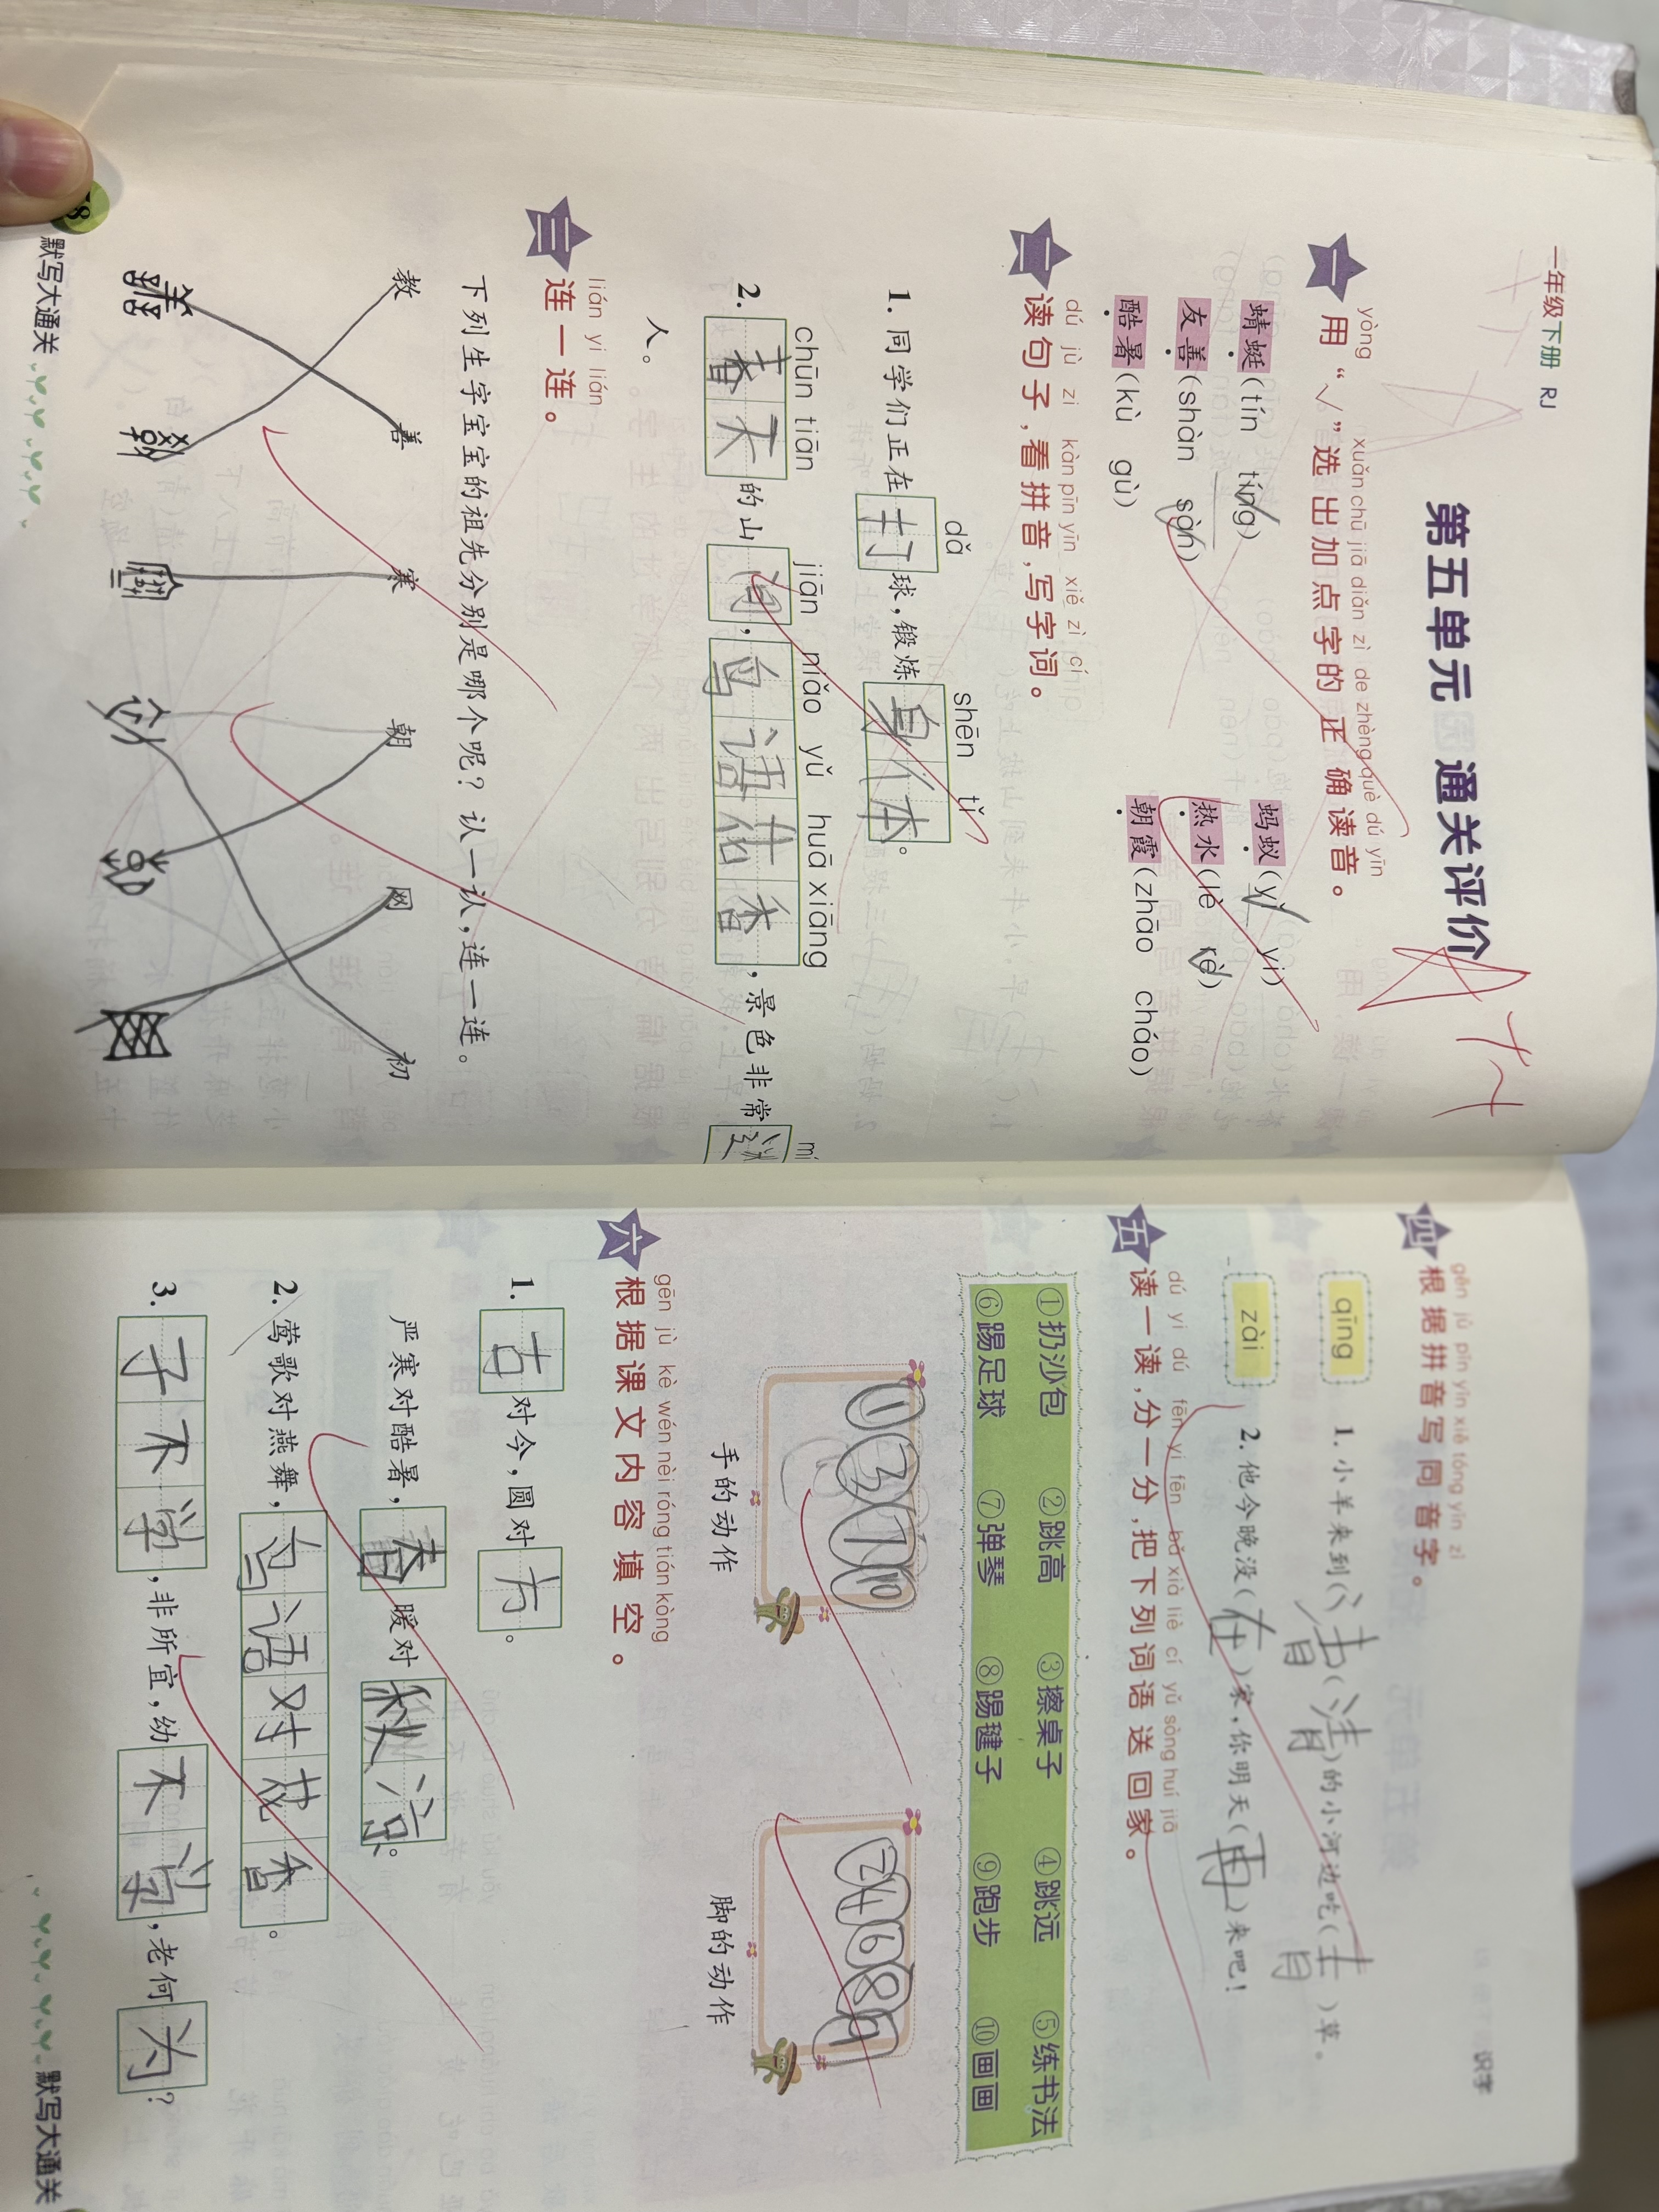 一年级下册 RJ
第五单元 通关评价
yòng xuǎn chū jiā diǎn zì de zhèng què dú yīn
一 用“√”选出加点字的正确读音。
蜻蜓(tín tíng) 蚂蚁(yǐ yì)
友善(shàn sàn) 热水(lè rè)
酷暑(kù gù) 朝霞(zhāo cháo)
dú jù zi kàn pīn yīn xiě zì cí
二 读句子,看拼音,写字词。
dǎ shēn tǐ
1. 同学们正在打球,锻炼身体。
chūn tiān jiān niǎo yǔ huā xiāng mí
2. 春天的山间,鸟语花香,景色非常迷
人。
lián yi lián
三 连一连。
下列生字宝宝的祖先分别是哪个呢?认一认,连一连。
教 善 寒 朝 网 初
8 默写大通关
识字
gēn jù pīn yīn xiě tóng yīn zì
四 根据拼音写同音字。
qīng 1. 小羊来到(清(清)的小河边吃(青)草。
zài 2. 他今晚没(在)家,你明天(再)来吧!
dú yi dú fēn yi fēn bǎ xià liè cí yǔ sòng huí jiā
五 读一读,分一分,把下列词语送回家。
①扔沙包 ②跳高 ③擦桌子 ④跳远 ⑤练书法
⑥踢足球 ⑦弹琴 ⑧踢毽子 ⑨跑步 ⑩画画
①③⑦⑩ ②④⑥⑧⑨
手的动作 脚的动作
gēn jù kè wén nèi róng tián kòng
六 根据课文内容填空。
1. 古对今,圆对方。
严寒对酷暑,春暖对秋凉。
2. 莺歌对燕舞,鸟语对花香。
3. 子不学,非所宜,幼不学,老何为?
默写大通关